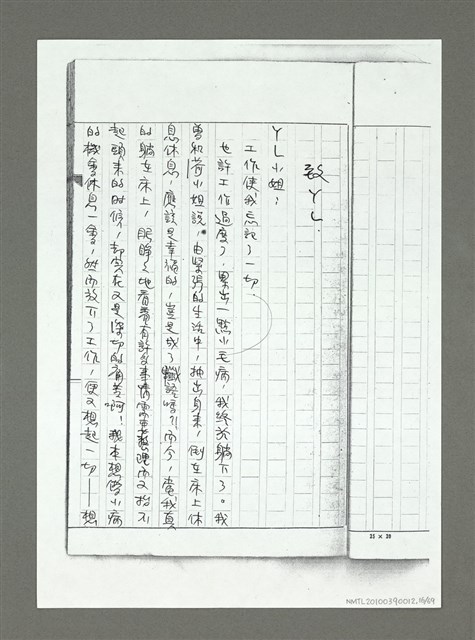 致YL
YL小姐：
工作使我忘記了一切
也許工作過度了，累出一點小毛病，我終於躺下了。我
曾和荷小姐說，由緊張的生活中，抽出身來，倒在床上休
息休息，應該是幸福的，豈是成了懺語嗎？而今，當我真
的躺在床上，眼睜々地看着有許多事情需要整理而又抬不
起頭來的時候，却實在又是深切的痛苦啊！我本想借小病
的機會休息一會，然而放下了工作，便又想起一切——想
25 × 20
NMTL20100390012.